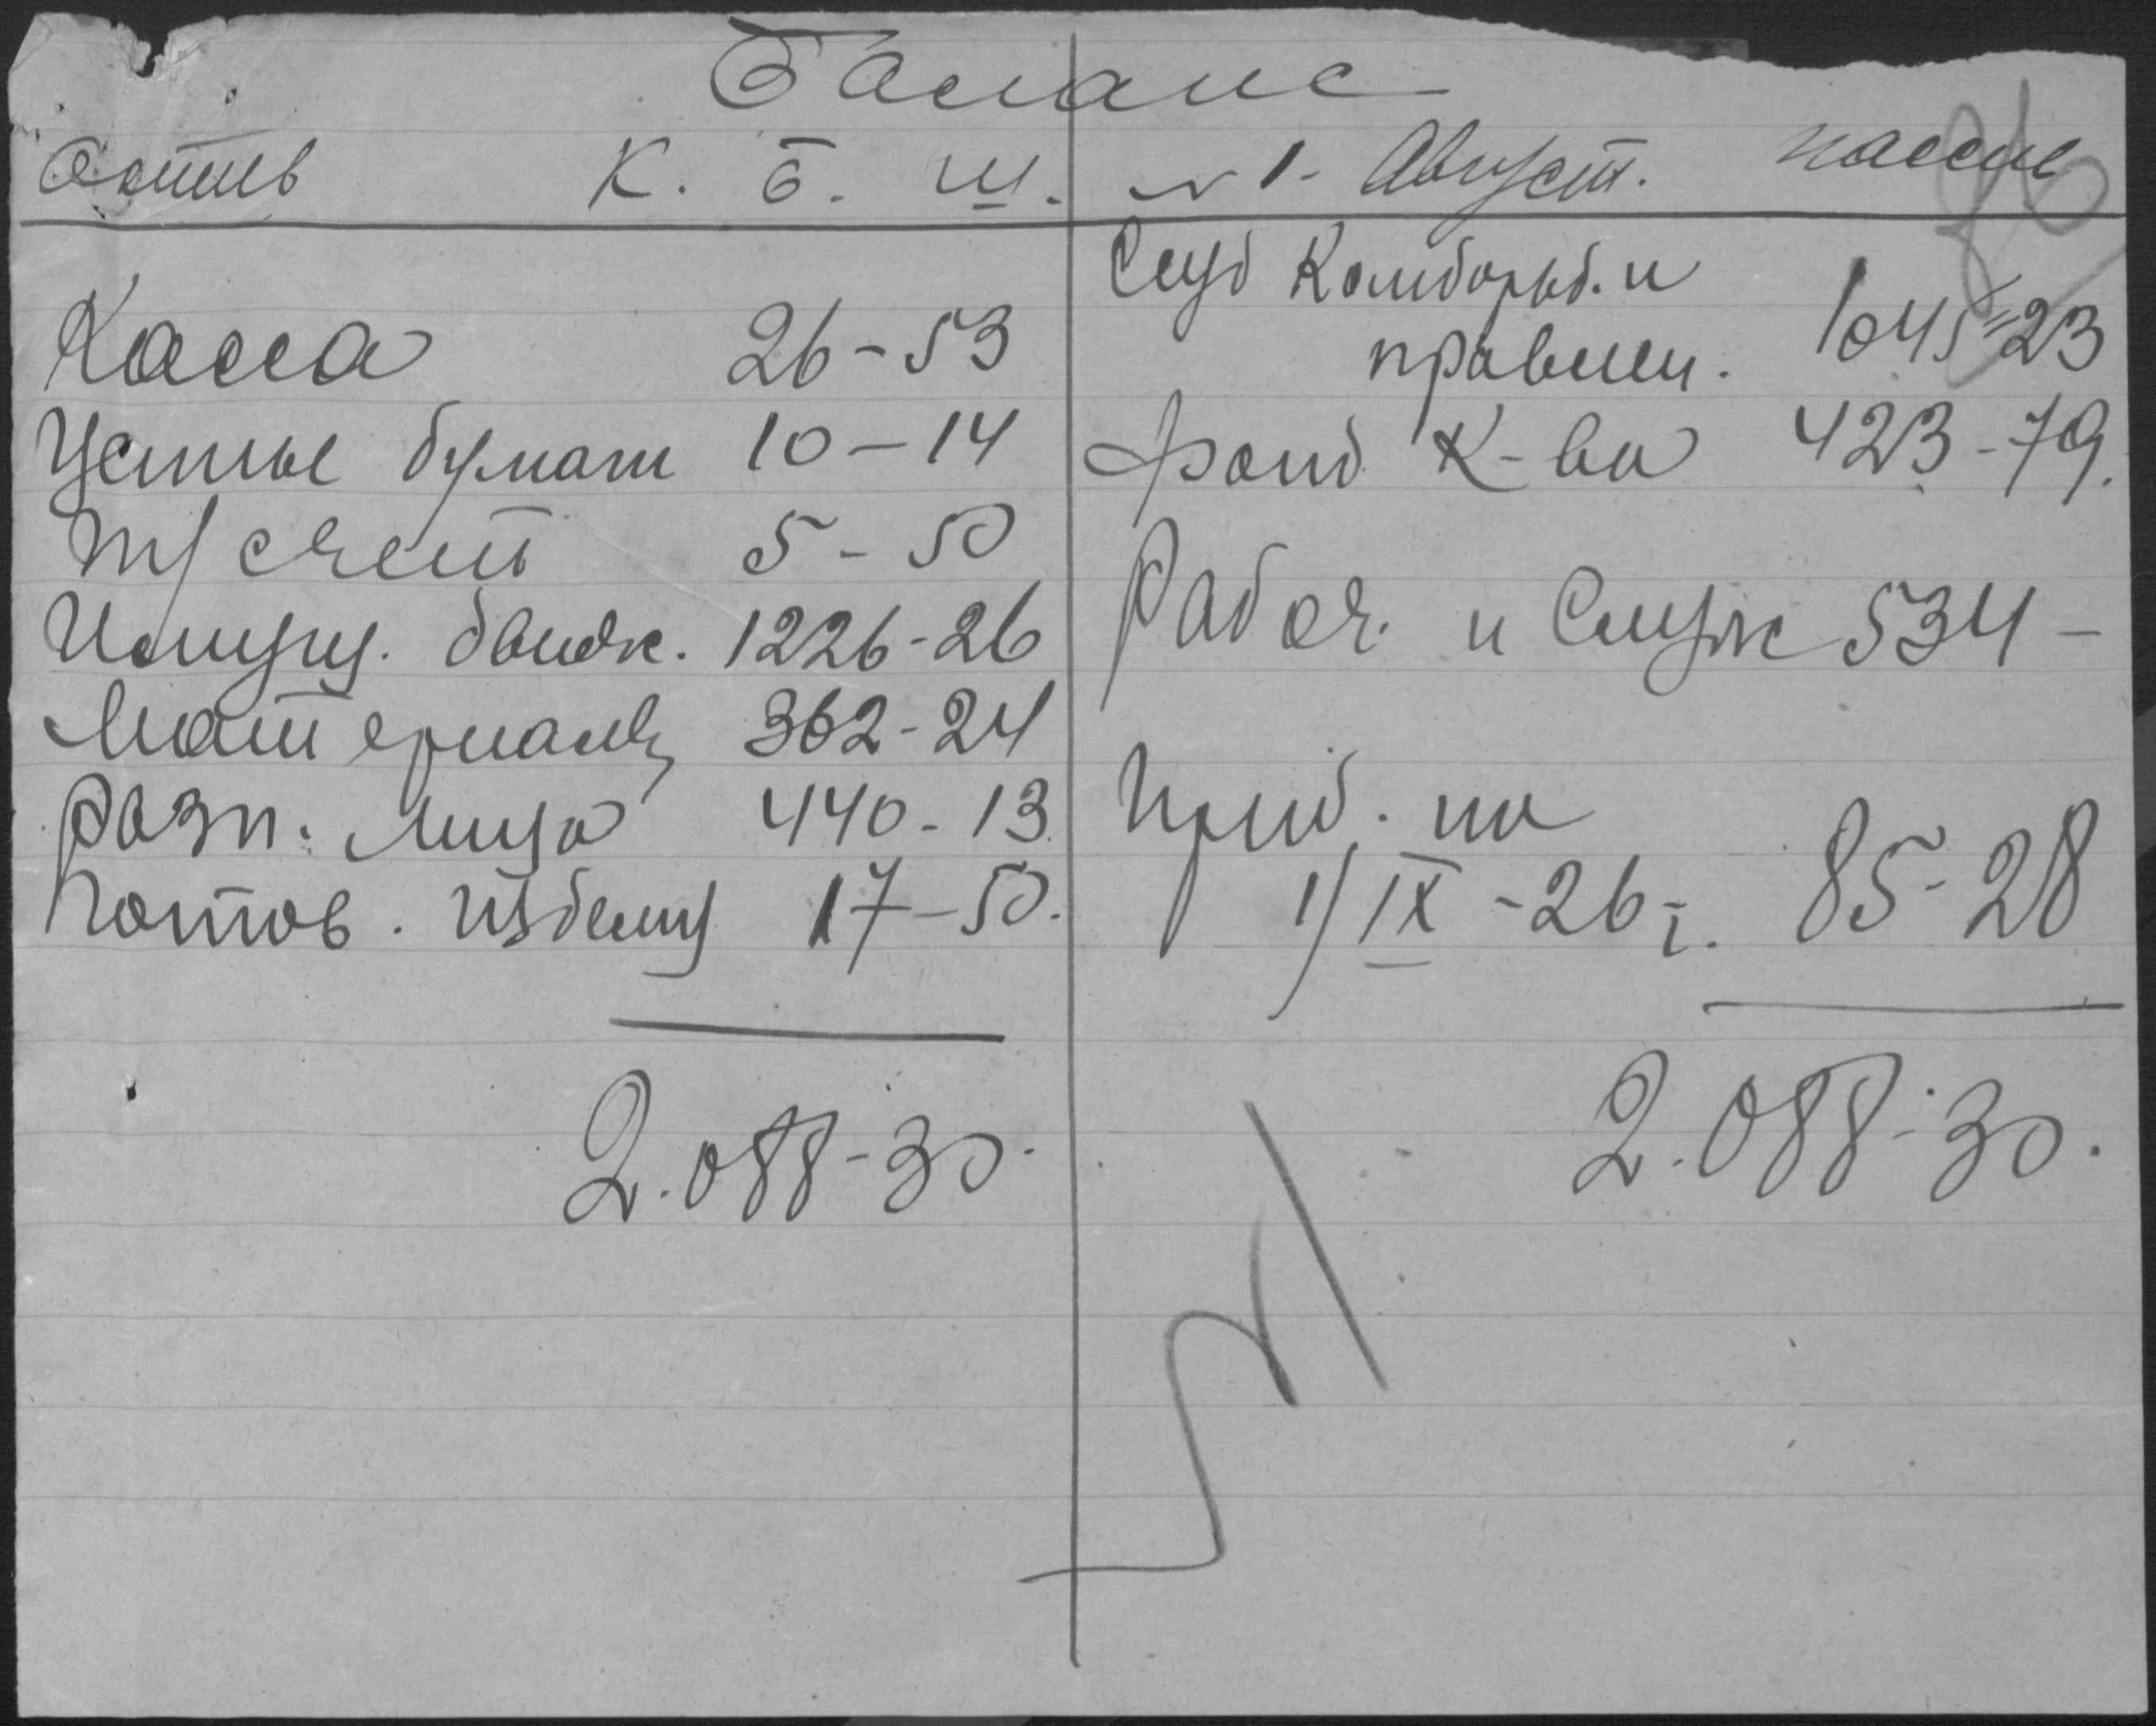 Баланс
актив К. Б. Ш. № 1- Август. пассив
Касса 26-53
Ценные бумаги 10-14
т/счет 5-50
Имущ. движ. 1226-26
Материалы 362-24
Разн. лица 440-13
Готов. изделия 17-50.
2.088-30.
Ссуд Комборьб. и
правлен. 1045=23
фонд К-ва 423-79.
Рабоч. и Служ 534-
Приб. на
1/IX-26 г. 85-28
2.088-30.